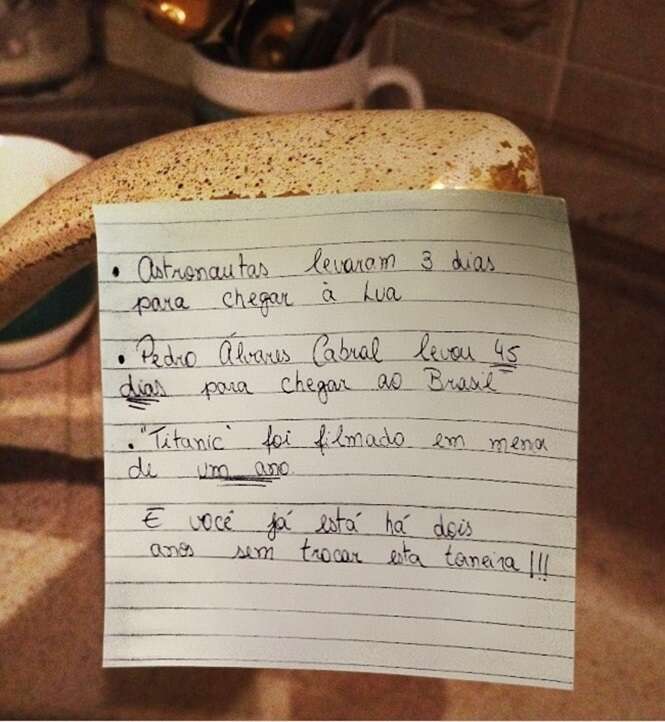 • Astronautas levaram 3 dias
para chegar à Lua
• Pedro Álvares Cabral levou 45
dias para chegar ao Brasil
• "Titanic" foi filmado em menos
de um ano.
E você já está há dois
anos sem trocar esta torneira!!!